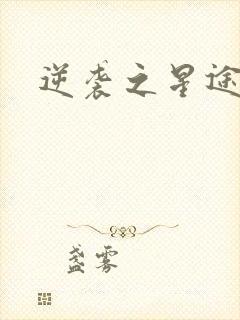 逆袭之星途
盏雾